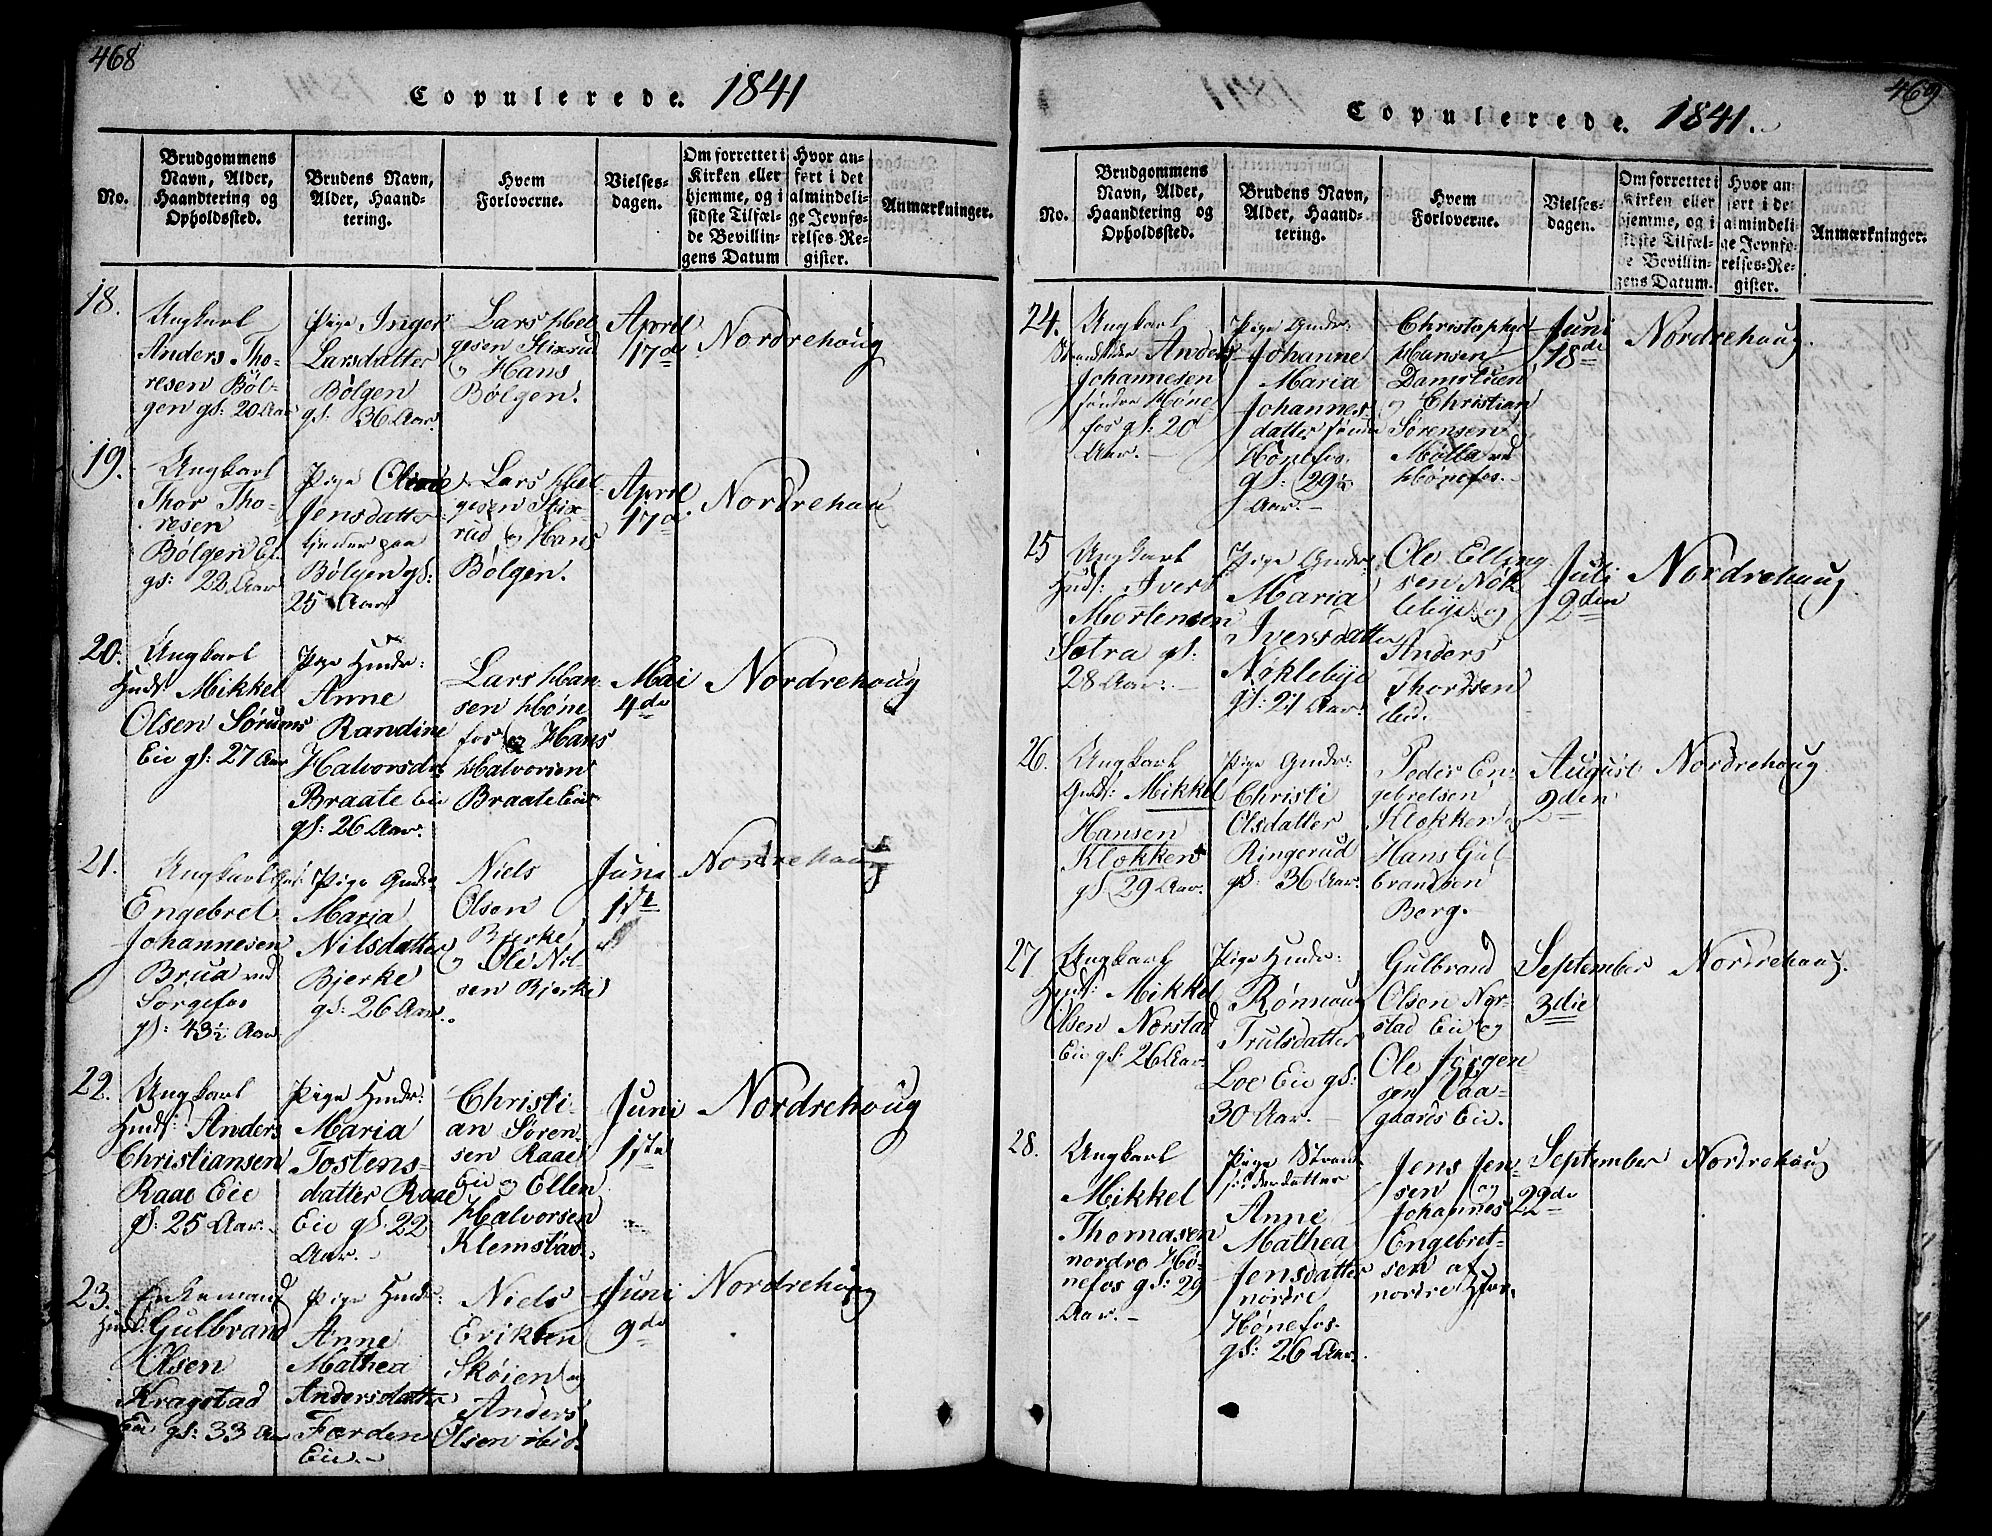 468
Copulerede. 1841
No.
Brudgommens
Navn, Alder,
Haandtering og
Opholdssted.
Brudens Navn,
Alder, Haand-
tering.
Hvem
Forloverne.
Vielses-
dagen.
Om forrettet i
Kirken eller
hjemme, og i
sidste Tilfæl-
de Bevillin-
gens Datum
Hvor an-
ført i det
almindeli-
ge Jevnfø-
relses-Re-
gister.
Anmærkninger.
18.
Ungkarl
Anders Tho-
resen Böl-
gen gl: 20 Aar
Pige Inger
Larsdatter
Bölgen
gl: 36 Aar.
Lars Hel
gesen Stixrud
og Hans
Bølgen.
April
17de
Nordrehoug
19.
Ungkarl
Thor Tho-
resen
Bølgen Ei.
gl: 22 Aar
Pige
Jensdatter
tjener paa
Bölgen gl:
25 Aar
Lars Hel
gesen Stix-
rud og Hans
Bølgen.
April
17de
Nordrehou
20.
Ungkarl
Husf: Mikkel
Olsen Sørums
Eie gl: 27 Aar
Pige Husdr:
Anne
Randine
Halvorsdr
Braate Eie
gl: 26 Aar.
Lars Han
sen Höne
fos og Hans
Halvorsen
Braate Eie
Mai
4de
Nordrehoug
21.
Ungkarl
Engebret
Johannesen
Brua ved
Sorgefos
gl: 43½ Aar
Pige Gudr
Maria
Nilsdatter
Bjerke
gl: 26 Aar.
Niels
Olsen
Bjerke
og Ole Nil-
sen Bjerke
Juni
1ste
Nordrehoug
22.
Ungkarl
Husf: Anders
Christiansen
Raae Eie
gl: 25 Aar.
Pige Husdr:
Maria
Tostens-
datter Raae
Eie gl: 22
Aar.
Christi-
an Sören
sen Raae
Eie og Ellen
Halvorsen
Klemstad.
Juni
1ste
Nordrehoug
23.
Enkemand
Husf: Gulbrand
Olsen
Kragstad
Eie gl: 33 Aar
Pige Husdr:
Anne
Mathea
Andersdatter
Færden
Eie.
Niels
Eriksen
Skøien og
Anders
Olsen ibid.
Juni
9de
Nordrehoug
469
Copulerede. 1841.
No.
Brudgommens
Navn, Alder,
Haandtering og
Opholdssted.
Brudens Navn,
Alder, Haand-
tering.
Hvem
Forloverne.
Vielses-
dagen.
Om forrettet i
Kirken eller
hjemme, og i
sidste Tilfæl-
de Bevillin-
gens Datum.
Hvor an-
ført i de
almindeli-
ge Jevnfø-
relses-Re-
gister.
Anmærkninger.
24.
Ungkarl
Anders
Johannesen
søndre Höne
fos gl: 20
Aar.
Pige Gudr:
Johanne
Maria
Johannes
datter søndre
Hönefos.
gl: 29½
Aar.
Christopher
Hansen
Damstuen
og Christian
Sörensen
Mölla ved
Hönefos.
Juni
18de
Nordrehoug.
25
Ungkarl
Husf: Iver
Mortensen
Setra gl:
28 Aar.
Pige Gudr:
Maria
Iversdatter
Nøklebye
gl: 21 Aar.
Ole Elling
sen Nök
lebye og
Anders
Thordsen
ibid.
Juli
2den
Nordrehoug.
26.
Ungkarl
Gudf: Mikkel
Hansen
Klokken
gl: 29 Aar.
Pige Gudr:
Christi
Olsdatter
Ringerud
gl: 36 Aar.
Peder En-
gebretsen
Klokken og
Hans Gul
brandsen
Berg.
August
2den
Nordrehoug
27
Ungkarl
Husf: Mikkel
Olsen Nærstad
Eie gl: 26 Aar.
Pige Husdr:
Rönnoug
Trulsdatter
Loe Eie gl:
30 Aar.
Gulbrand
Olsen Nær-
stad Eie og
Ole Jörgen
sen Vaa-
gaards Eie.
September
3die
Nordrehoug.
28.
Ungkarl
Mikkel
Thomasen
nordre Hö-
nefos gl: 29
Aar.
Pige Strand
sidderdatter
Anne
Mathea
Jensdatter
nordre
Hönefos.
gl: 26 Aar.
Jens Jen
sen og
Johannes
Engebret-
sen af
nordre Hfos.
September
22de
Nordrehoug